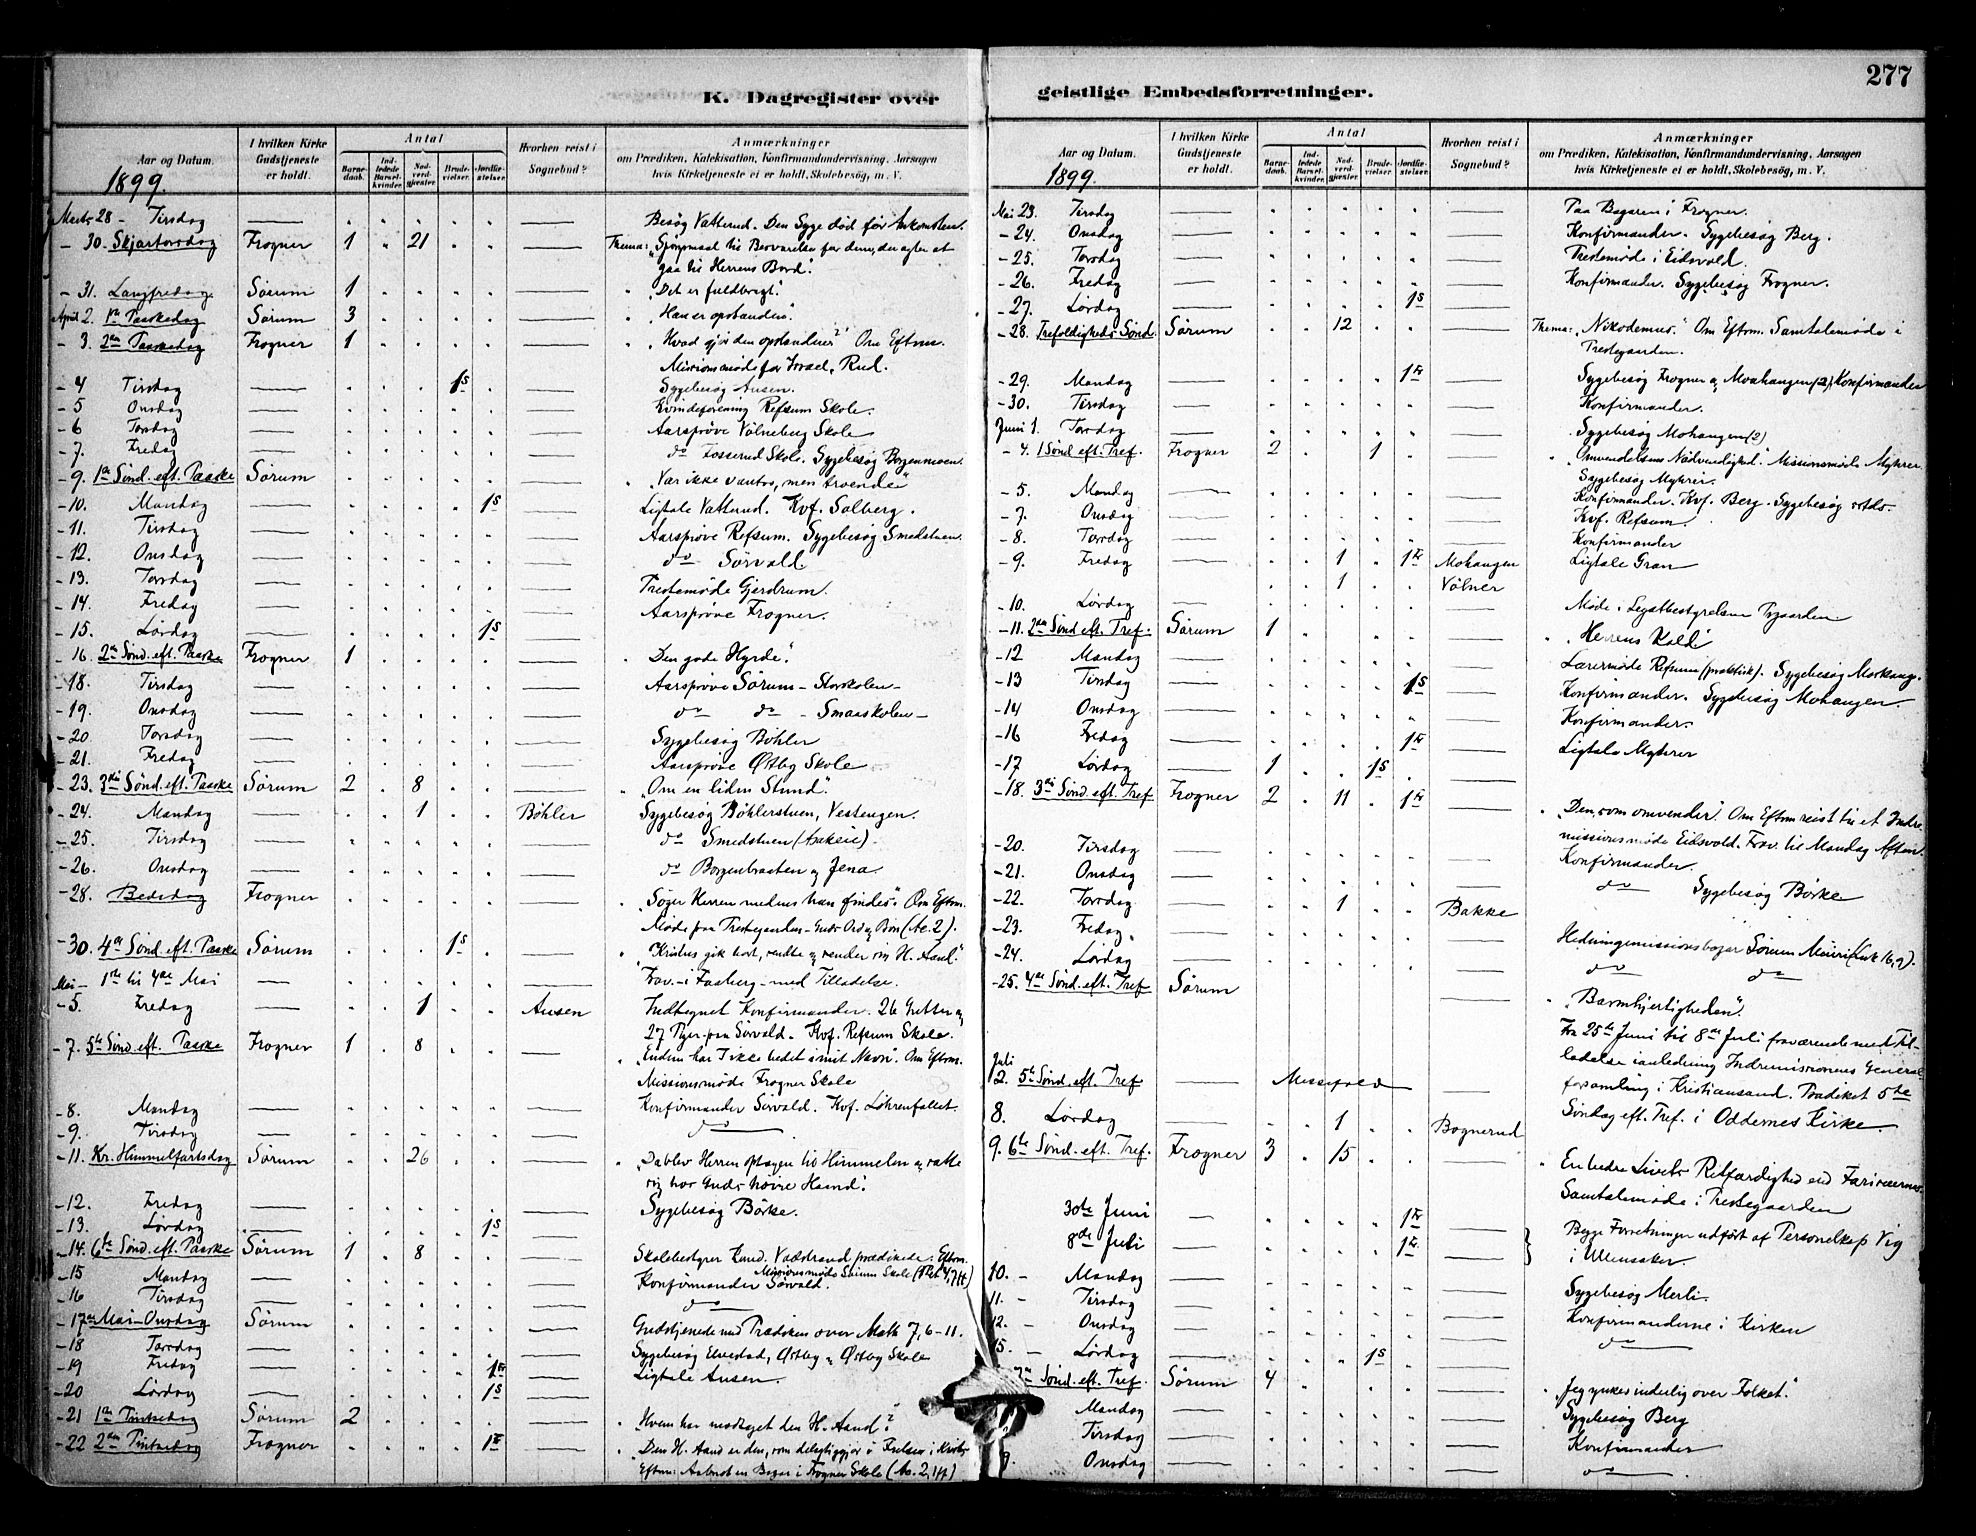 277
K. Dagregister over geistlige Embedsforretninger.
Aar og Datum.
I hvilken Kirke Gudstjeneste er holdt.
Antal
Barnedaab.
Indledede Barselkvinder.
Nadverdgjæster.
Brudevielser.
Jordfæstelser.
Hvorhen reist i Sognebud?
Anmærkninger
om Prædiken, Katekisation, Konfirmandundervisning, Aarsagen
hvis Kirketjeneste ei er holdt, Skolebesøg, m. V.
1899.
Marts 28 - Tirsdag Besøg Vatterud. Den Syge død før Ankomsten.
- 30. Skjærtorsdag Frogner 1 21 Thema: "Spørgsmaal til Besvarelse for dem, der agter at
gaa til Herrens Bord".
- 31. Langfredag Sørum 1 "Det er fuldbragt".
April 2. 1ste Paaskedag Sørum 3 "Han er opstanden".
- 3. 2den Paaskedag Frogner 1 "Hvad gjør den opstandne?" Om Efterm.
Missionsmøde for Israel, Rud.
- 4 Tirsdag 1 S Sygebesøg Ausen.
- 5 Onsdag Kvindeforening Refsum Skole.
- 6 Torsdag Aarsprøve Vølneberg Skole
- 7. Fredag do Fosserud Skole. Sygebesøg Borgenmoen.
- 9. 1ste Sønd. eft. Paaske Sørum "Vær ikke vantro, men troende"
- 10. Mandag 1 S Ligtale Vatterud. Kvf. Solberg.
- 11. Tirsdag Aarsprøve Refsum. Sygebesøg Smedstuen.
- 12. Onsdag do Sørvald
- 13. Torsdag Prestemøde Gjerdrum.
- 14. Fredag Aarsprøve Frogner.
- 15. Lørdag 1 S
- 16 2den Sønd. eft. Paaske Frogner 1 "Den gode Hyrde".
- 18. Tirsdag Aarsprøve Sørum - Storskolen -
- 19. Onsdag do do - Smaaskolen -
- 20. Torsdag Sygebesøg Bøhler
- 21. Fredag Aarsprøve Østby Skole
- 23. 3die Sønd. eft. Paaske Sørum 2 8 "Om en liden Stund".
- 24. Mandag 1 Bøhler Sygebesøg Bøhlerstuen, Vestengen.
- 25. Tirsdag do Smedstuen
- 26. Onsdag do Borgenbraaten og Jena.
- 28. Bededag Frogner "Søger Herren medens han findes". Om Efterm.
Møde paa Prestegaarden - Guds Ord og Bøn (Ac. 2).
- 30. 4de Sønd. eft. Paaske Sørum 1 S "Kristus gik bort, sendte og sender sin H. Aand."
Mai - 1ste til 4de Mai Frav. - i Faaberg - med Tilladelse.
- 5. Fredag 1 Ausen Indtegnet Konfirmander. 26 Gutter og
27 Piger fra Sørvald. Kvf. Refsum Skole.
- 7. 5te Sønd. eft. Paaske Frogner 1 8 "Endnu har I ikke bedet i mit Navn". Om Efterm.
Missionsmøde Frogner Skole
- 8. Mandag Konfirmander Sørvald. Kvf. Løhrenfallet.
- 9. Tirsdag do
- 11. Kr. Himmelfartsdag Sørum 26 "Da blev Herren optagen til Himmelen og satte
sig hos Guds høire Haand".
- 12. Fredag Sygebesøg Børke.
- 13. Lørdag 1 S
- 14. 6te Sønd. eft. Paaske Sørum 1 8 Skolebestyrer Kand. Vadstrand prædikede. Efterm.
Missionsmøde Sørum Skole
- 15 Mandag Konfirmander Sørvald.
- 16 Tirsdag do
- 17de Mai - Onsdag Sørum Gudstjeneste med Prædiken over Math 7, 6-11.
- 18 Torsdag Sygebesøg Elvestad, Østby og Østby Skole
- 19 Fredag 1 Fr Ligtale Ausen.
- 20 Lørdag 1 S
- 21 1ste Pintsedag Sørum 2 "Hvem har modtaget den H. Aand?"
- 22 2den Pintsedag Frogner 1 Fr "Den H. Aand er den, som delagtiggjør i Frelsen i Kristo
Efterm: Aabnet en Bazar i Frogner Skole (Ac. 2, 1ff)
1899.
Mai 23. Tirsdag Paa Bazaren i Frogner.
- 24. Onsdag Konfirmander. Sygebesøg Berg.
- 25. Torsdag Prestemøde i Eidsvold.
- 26. Fredag Konfirmander. Sygebesøg Frogner.
- 27. Lørdag 1 S
- 28. Trefoldigheds Sønd. Sørum 12 Thema: "Nikodemus." Om Efterm. Samtalemøde i
Prestegaarden.
- 29. Mandag 1 Fr Sygebesøg Frogner og Moahangen (2), Konfirmander
- 30. Tirsdag Konfirmander.
Juni 1. Torsdag Sygebesøg Mohangen (2)
- 4. 1 Sønd eft. Tref. Frogner 2 1 "Omvendelsens Nødvendighed". Missionsmøde Myhrer
Sygebesøg Myhrer.
- 5. Mandag Konfirmander. Kvf. Berg. Sygebesøg sstds.
- 7. Onsdag Kvf. Refsum.
- 8. Torsdag Konfirmander
- 9. Fredag 1 1 Fr Mohangen Ligtale Gran
1 Vølner
- 10. Lørdag Møde i Legatbestyrelsen
- 11. 2den Sønd eft. Tref. Sørum 1 "Herrens Kald"
- 12 Mandag Lærermøde Refsum (praktisk). Sygebesøg
- 13 Tirsdag 1 S Konfirmander. Sygebesøg Mohangen.
- 14 Onsdag Konfirmander.
- 16 Fredag 1 Fr Ligtale Myhrer
- 17 Lørdag 1 1 S
- 18. 3die Sønd. eft. Tref Frogner 2 11 1 Fr "Den, som omvender". Om Efterm reist til et Indre-
missionsmøde Eidsvold. Frav. til Mandag Aften.
- 20. Tirsdag Konfirmander
- 21. Onsdag do Sygebesøg Børke
- 22. Torsdag 1 Bakke
- 23. Fredag. Hedningemissionsbazar Sørum
- 24. Lørdag do do
- 25. 4de Sønd. eft. Tref Sørum "Barmhjertigheden".
Fra 25de Juni til 8de Juli fraværende med Til-
ladelse i anledning Indremissionens General-
forsamling i Kristiansand. Prædiket 5te
Søndag eft. Tref. i Oddernes Kirke.
Juli 2. 5te Sønd. eft. Tref Messefald
8. Lørdag 1 Bognerud
9. 6te Sønd. eft. Tref. Frogner 3 15 "En bedre Livets Retfærdighed end Farisæernes.
Samtalemøde i Prestegaarden
30te Juni 1 Fr } Begge Forretninger udført af Personelkap. Vig
8de Juli 1 Fr i Ullensaker.
10. - Mandag Sygebesøg Merli.
11. - Tirsdag Konfirmanderne i Kirken
12. - Onsdag do
15. - Lørdag 1 S
Sønd. eft. Tref. Sørum 4 "Jeg ynkes inderlig over Folket."
Mandag Sygebesøg Berg
Tirsdag Konfirmander
Onsdag do